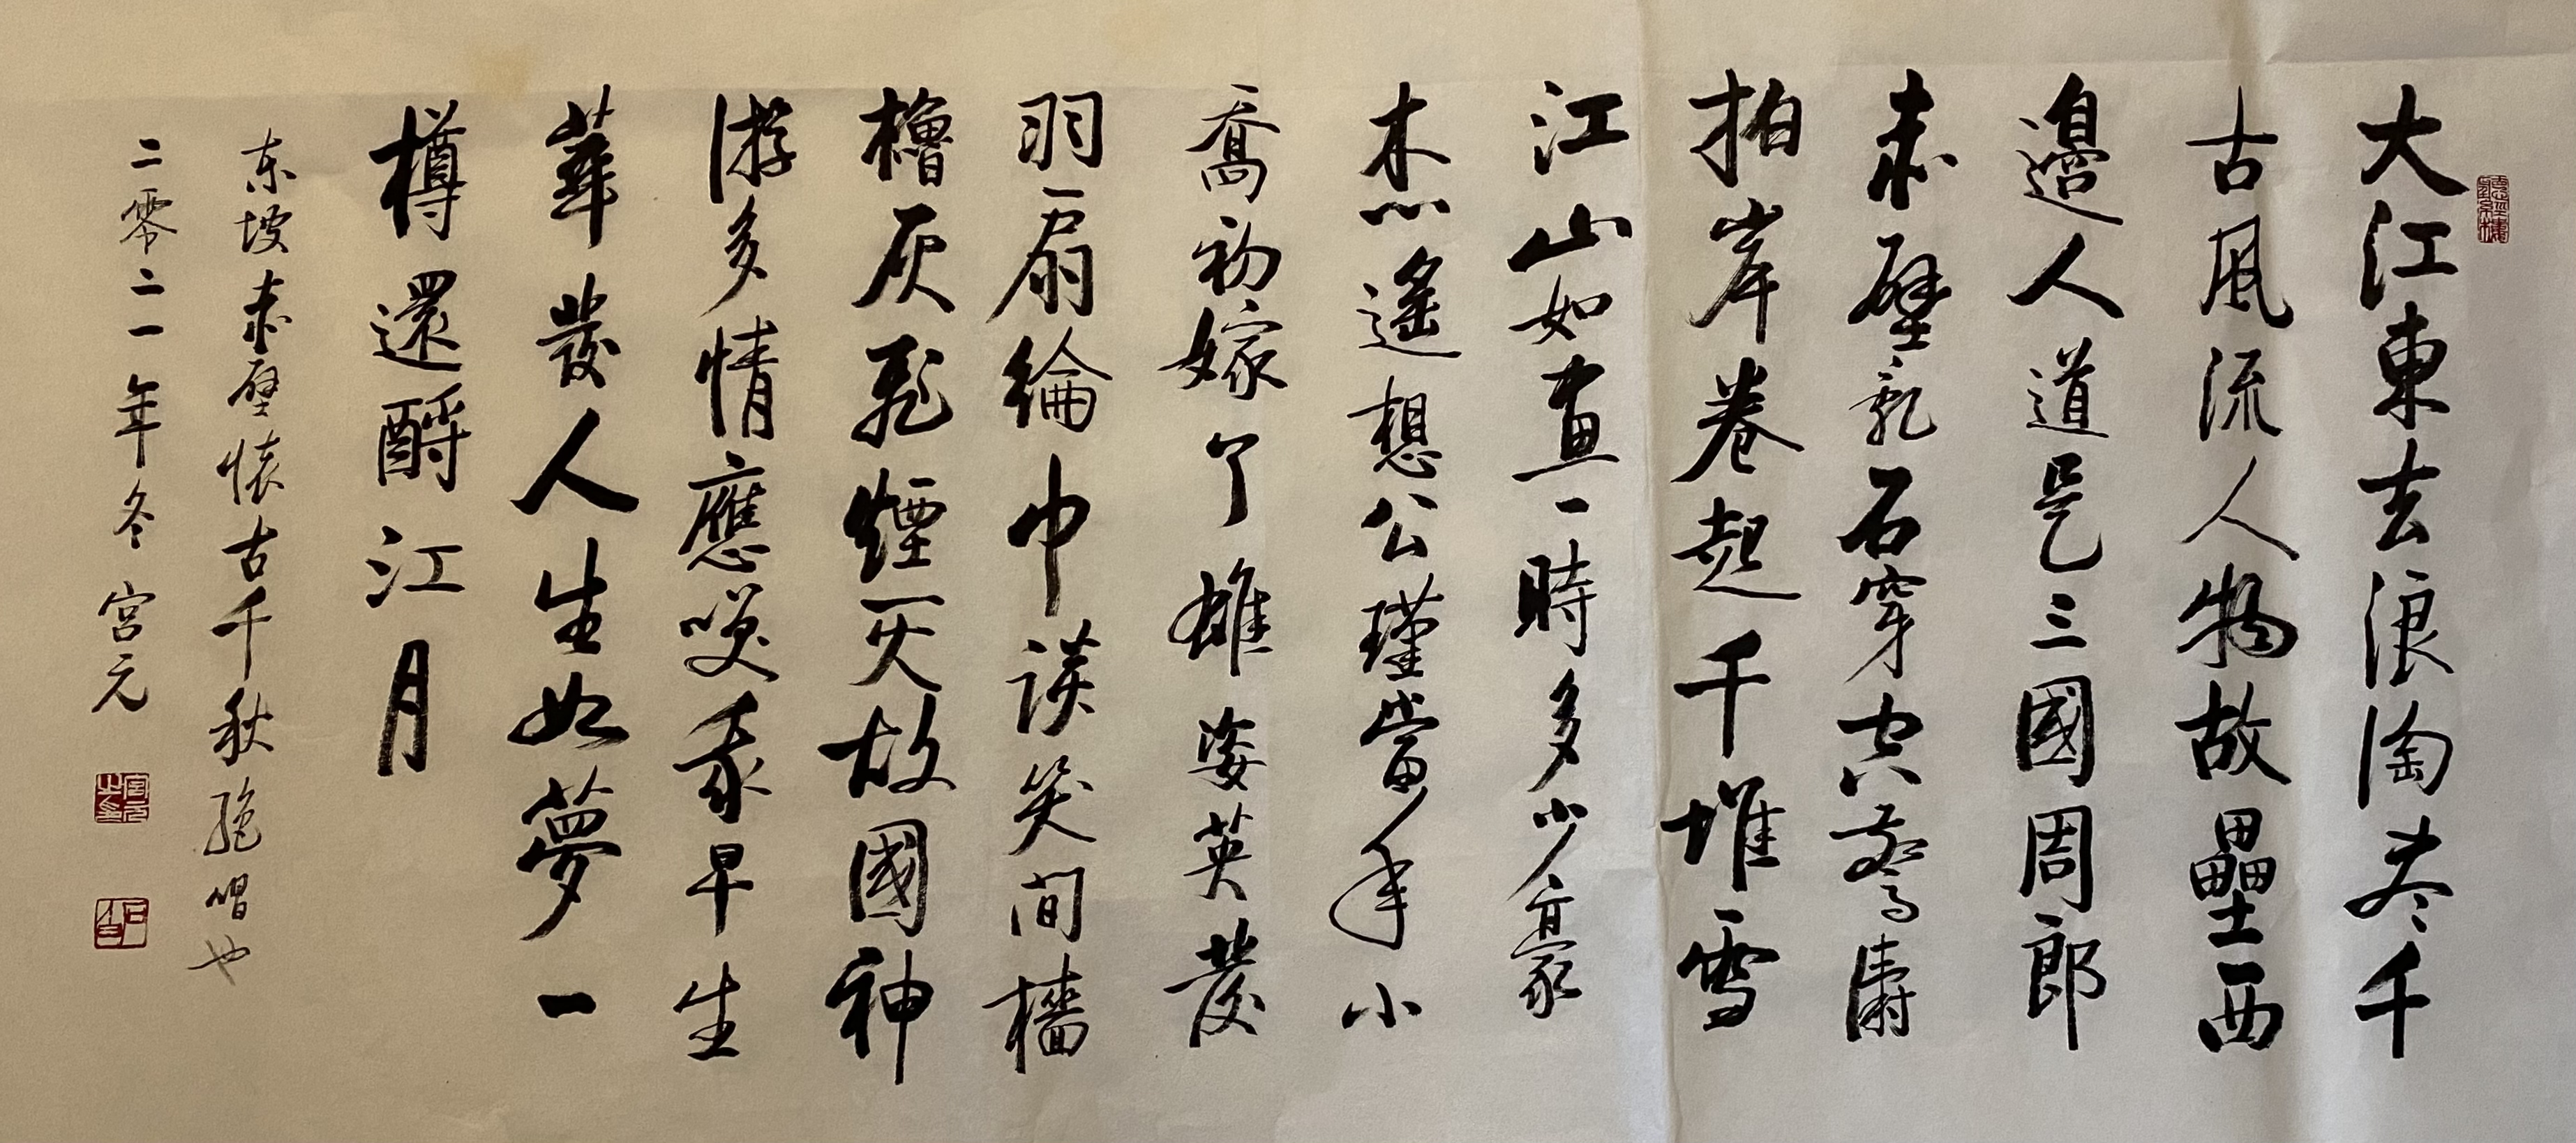 大江東去浪淘尽千
古風流人物故壘西
邉人道是三國周郎
赤壁乱石穿空驚濤
拍岸卷起千堆雪
江山如畫一時多少豪
杰遙想公瑾當年小
喬初嫁了雄姿英發
羽扇綸巾談笑間檣
櫓灰飛煙灭故國神
游多情應笑我早生
華發人生如夢一
樽還酹江月
东坡赤壁懷古千秋絕唱也
二零二一年冬 宮元